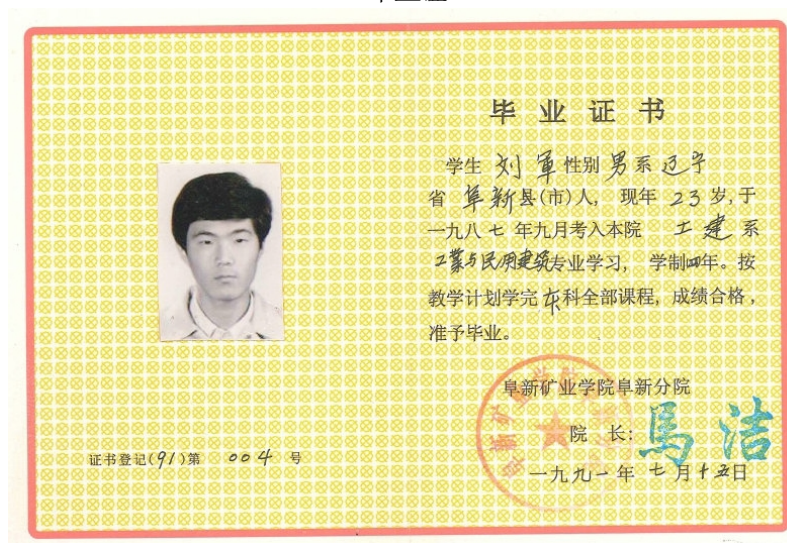 毕业证书
学生 刘军 性别 男 系 辽宁
省 阜新 县(市)人, 现年 23 岁, 于
一九八七年九月考入本院 土建 系
工業与民用建筑专业学习, 学制四年。按
教学计划学完本科全部课程, 成绩合格,
准予毕业。
阜新矿业学院阜新分院
院 长: 馬洁
一九九一年 七月十五日
证书登记(91)第 004 号